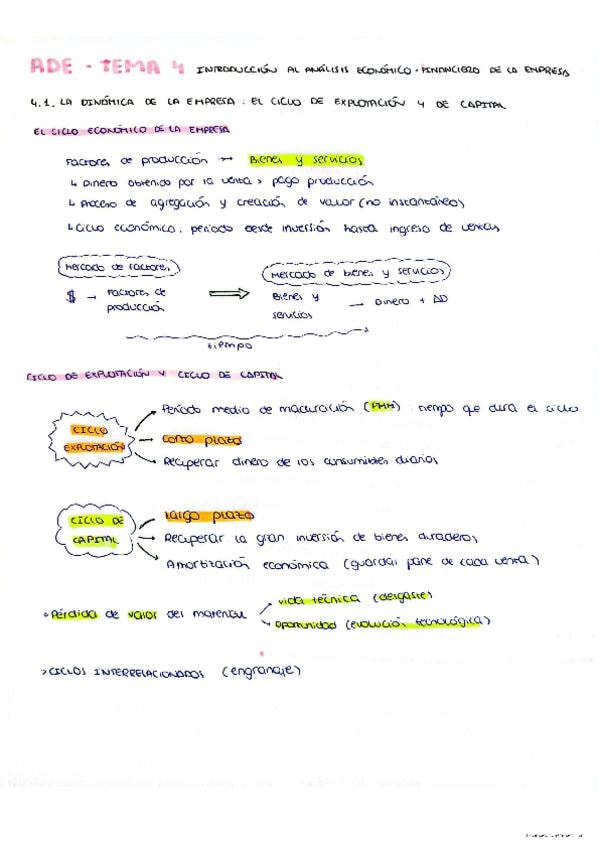 ADE - TEMA 4 INTRODUCCIÓN AL ANÁLISIS ECONÓMICO-FINANCIERO DE LA EMPRESA
4.1. LA DINÓMICA DE LA EMPRESA: EL CICLO DE EXPLOTACIÓN Y DE CAPITAL
EL CICLO ECONÓMICO DE LA EMPRESA
Factores de producción → Bienes y servicios
↳ Dinero obtenido por la venta > pago producción
↳ Proceso de agregación y creación de valor (no instantáneo)
↳ Ciclo económico: período desde inversión hasta ingreso de ventas
Mercado de factores
Mercado de bienes y servicios
$ → Factores de producción
⇒
Bienes y servicios → Dinero + ΔD
tiempo
CICLO DE EXPLOTACIÓN Y CICLO DE CAPITAL
CICLO EXPLOTACIÓN
Período medio de maduración (PMM): tiempo que dura el ciclo
Corto plazo
Recuperar dinero de los consumibles diarios
CICLO DE CAPITAL
Largo plazo
Recuperar la gran inversión de bienes duraderos
Amortización económica (guardar parte de cada venta)
• Pérdida de valor del material
vida técnica (desgaste)
oportunidad (evolución tecnológica)
> CICLOS INTERRELACIONADOS (engranaje)